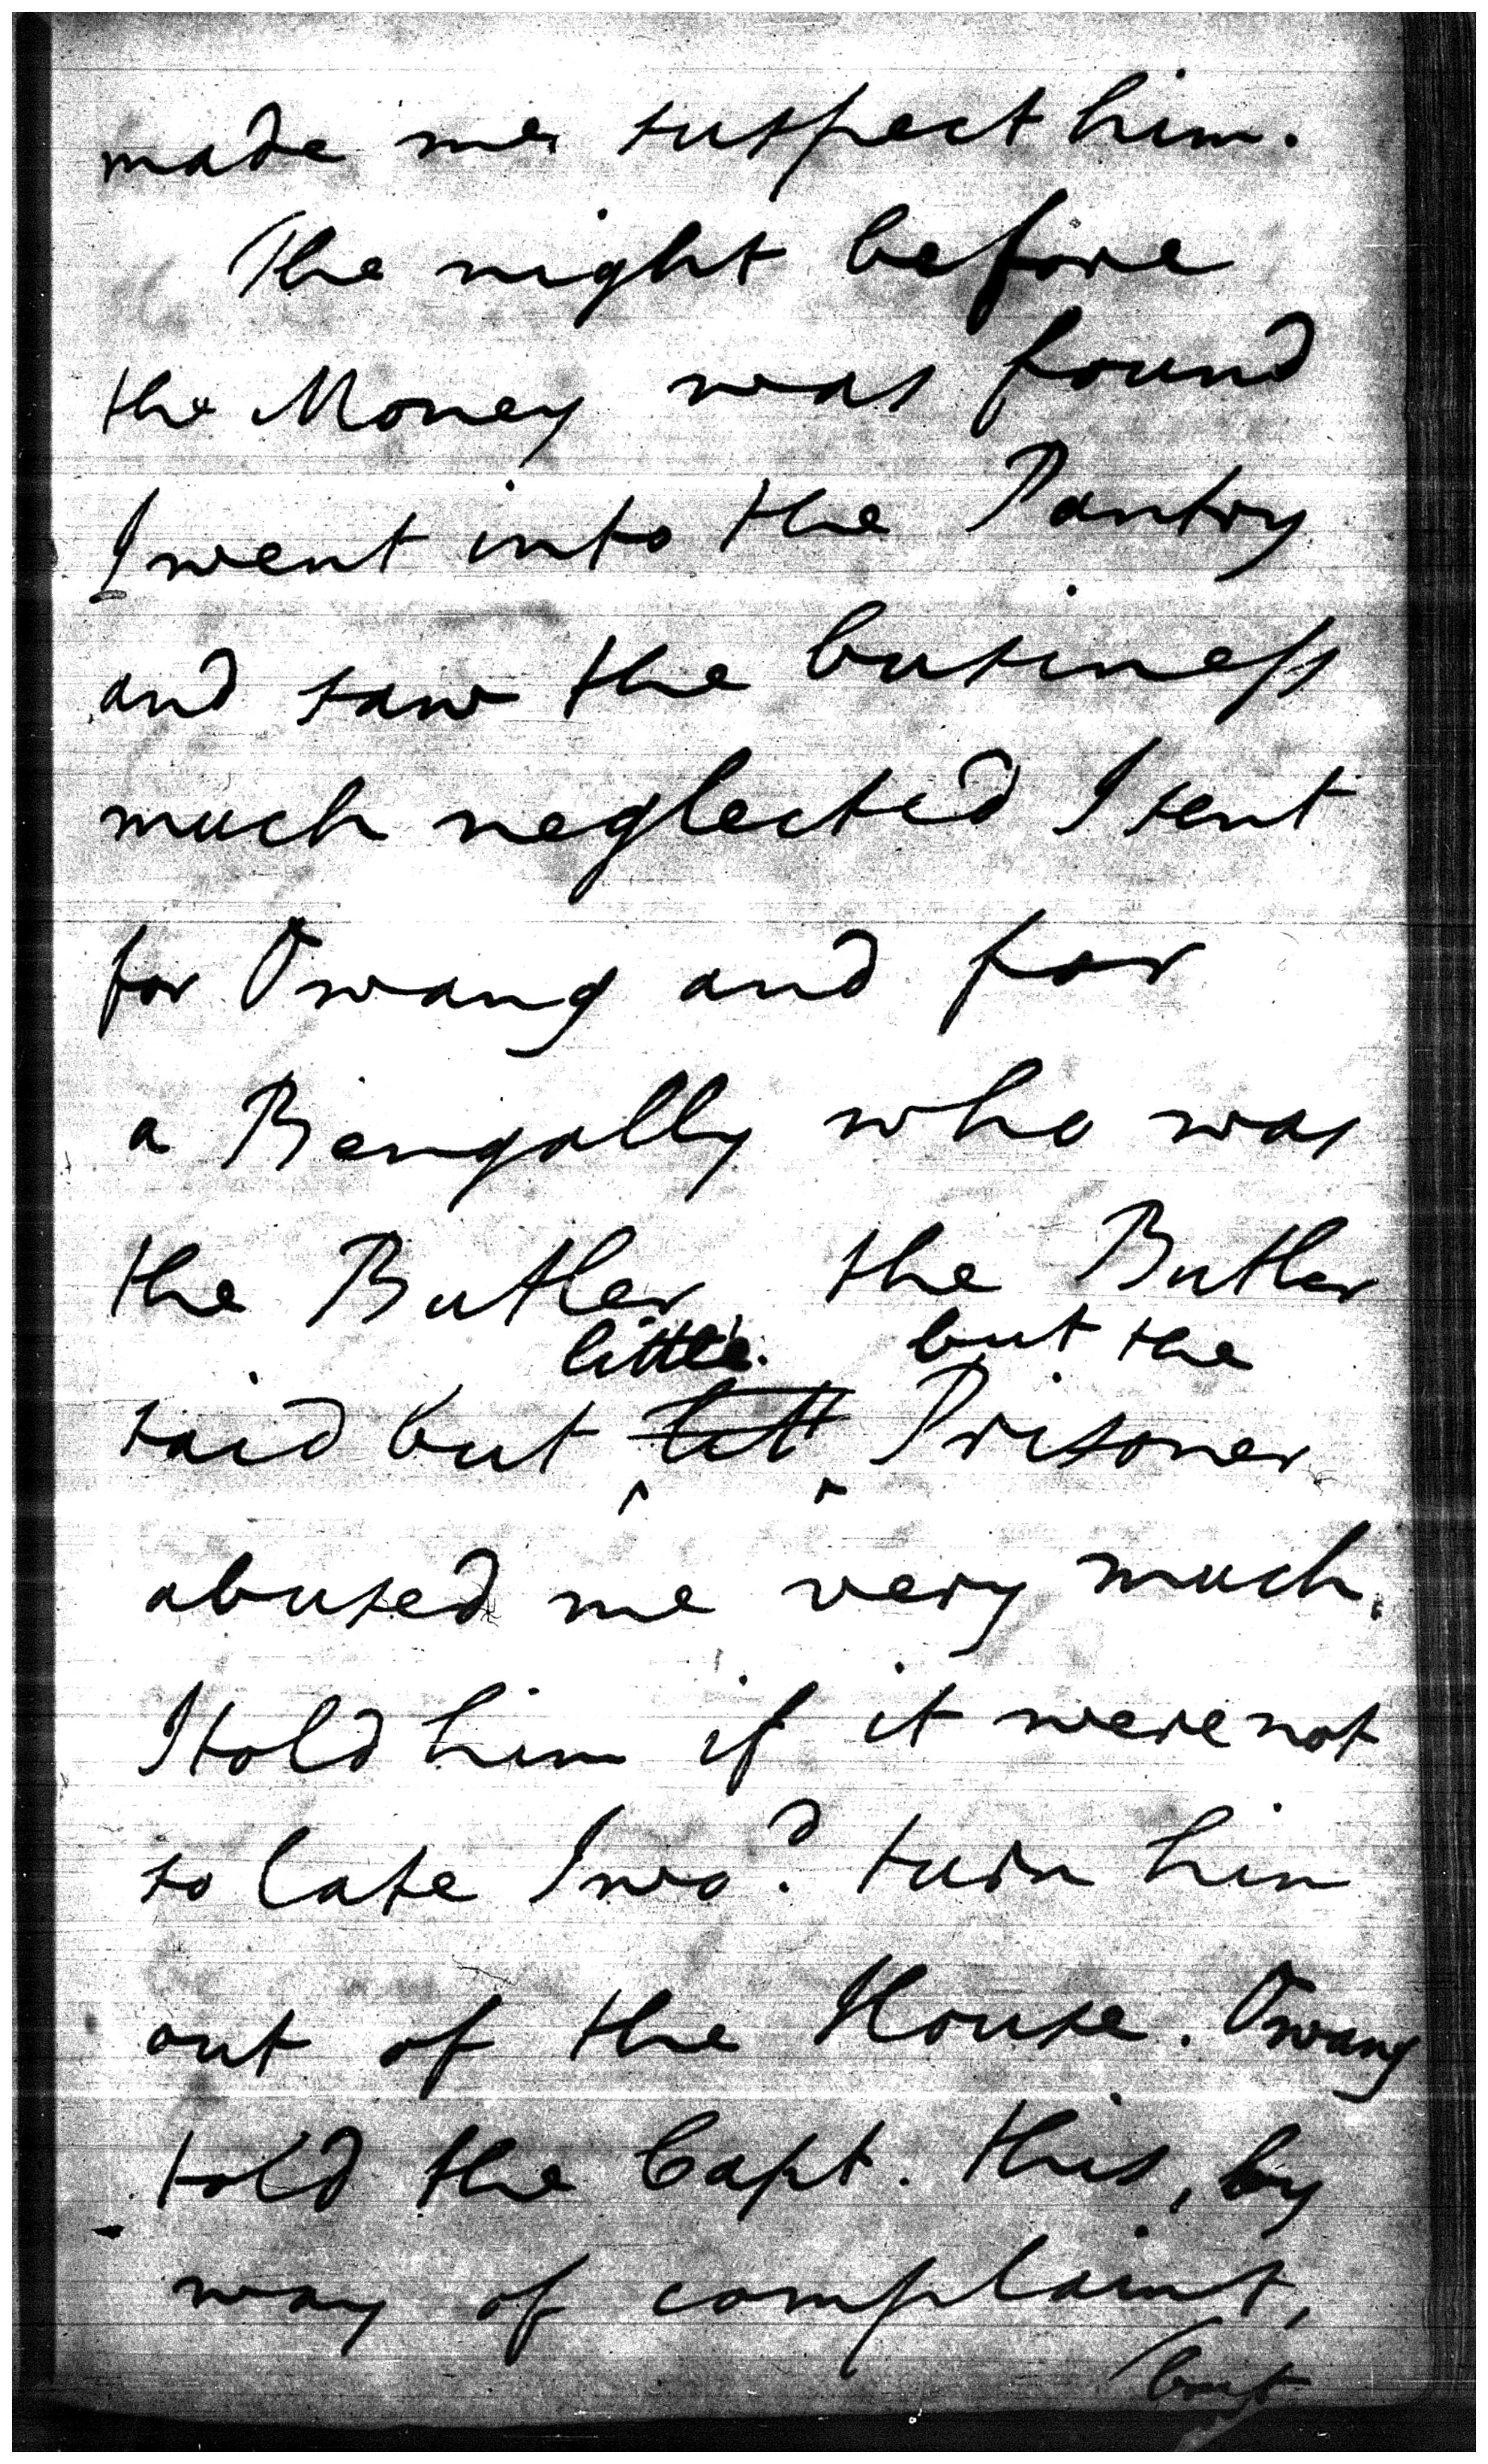 made me suspect him.
The night before
the Money was found
I went into the Pantry
and saw the business
much neglected I sent
for Owang and for
a Bengally who was
the Butler, the Butler
little. but the
said but litt Prisoner
abused me very much.
I told him if it were not
so late I wo.d turn him
out of the House. Owang
told the Capt. this, by
way of complaint,
but